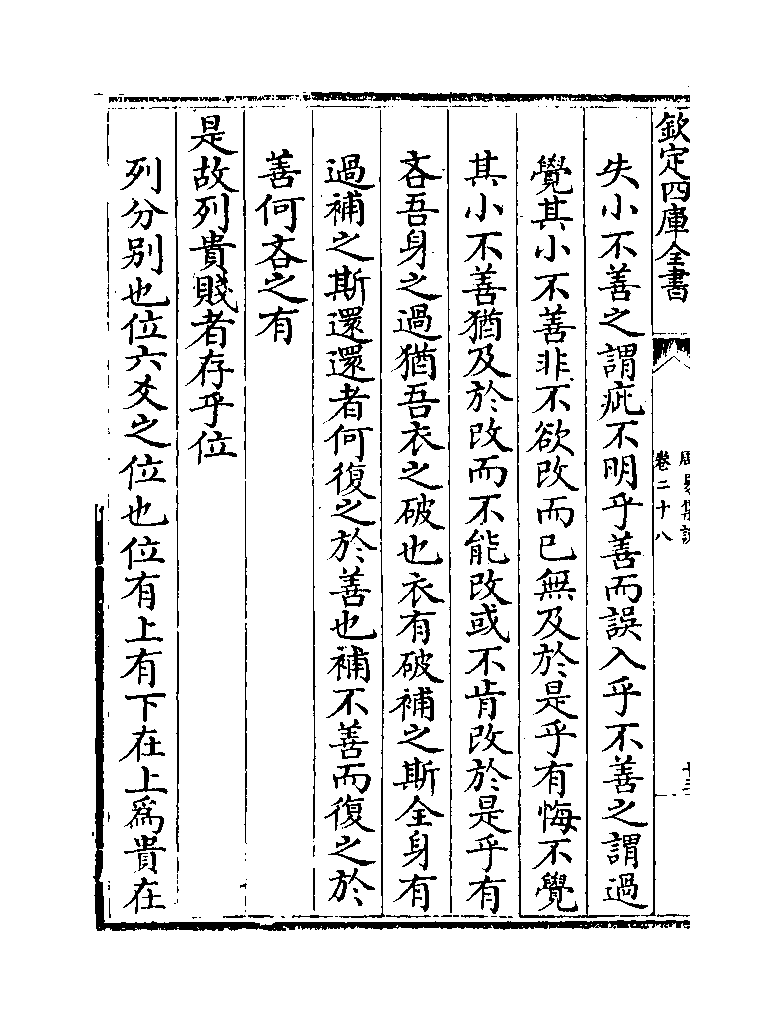 欽定四庫全書
卷二十八
失小不善之謂疵不明乎善而誤入乎不善之謂過
覺其小不善非不欲改而已無及於是乎有悔不覺
其小不善猶及於改而不能改或不肯改於是乎有
吝吾身之過猶吾衣之破也衣有破補之斯全身有
過補之斯還還者何復之於善也補不善而復之於
善何吝之有
是故列貴賤者存乎位
列分別也位六爻之位也位有上有下在上爲貴在